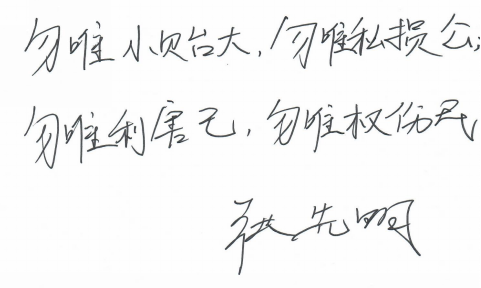 勿唯小贻大,勿唯私损公;
勿唯利害己,勿唯权伤民
先明